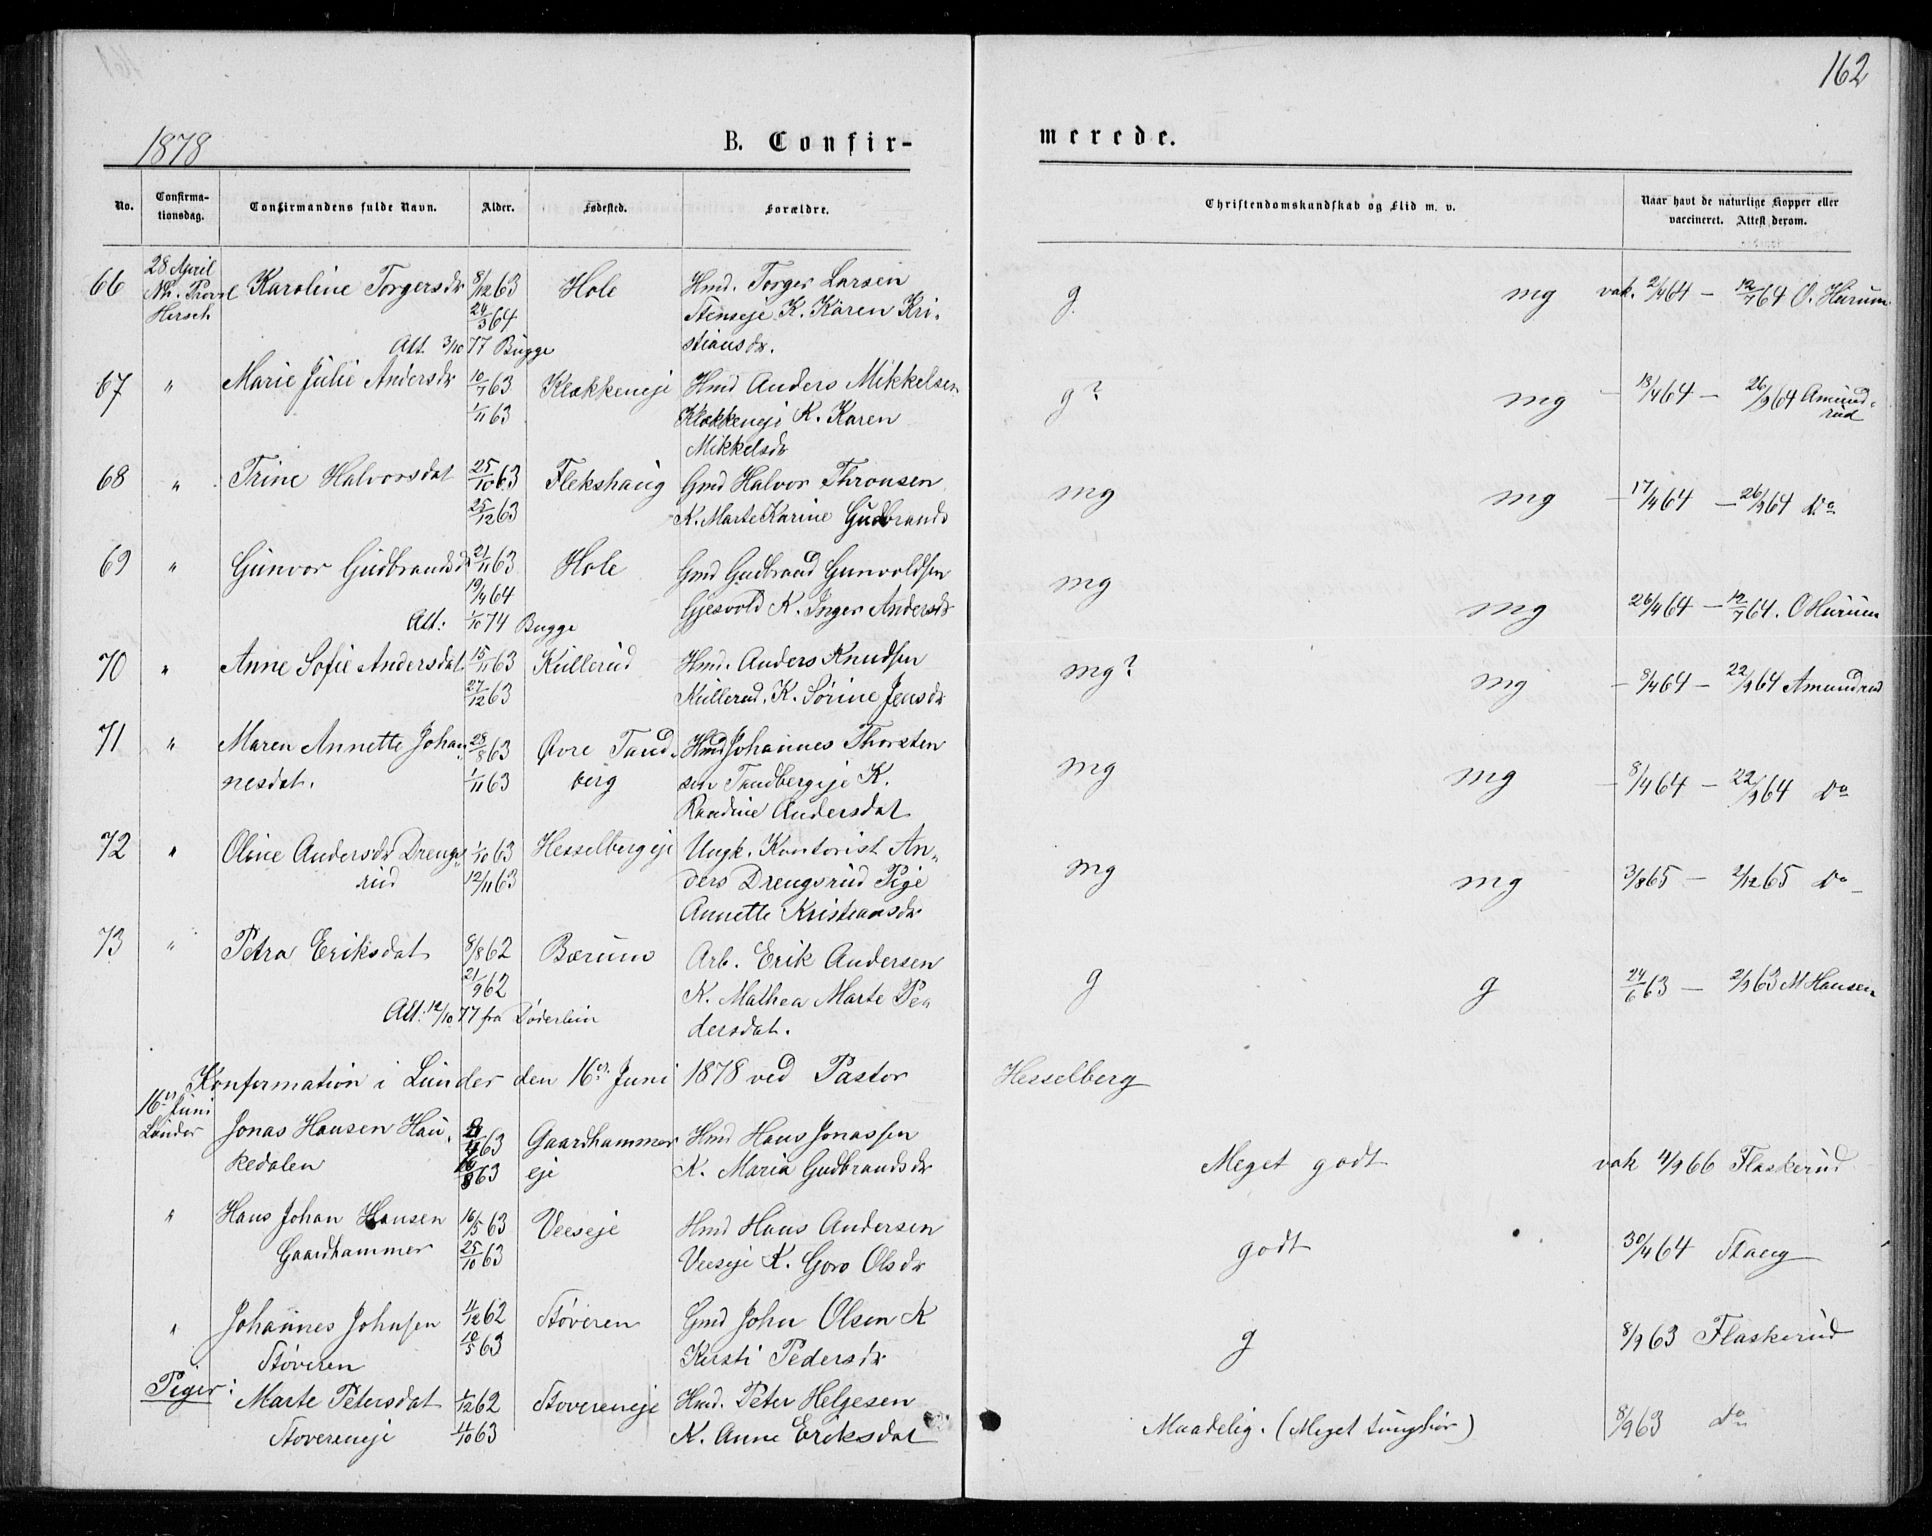 162
1878
B. Confir-
merede.
No.
Confirma-
tionsdag.
Confirmandens fulde Navn.
Alder.
Fødested.
Forældre.
Christendomskundskab og Flid m. v.
Naar havt de naturlige Kopper eller
vaccineret. Attest derom.
66 28 April Karoline Torgersdr 8/12 63 Hole Hmd. Torger Larsen g. mg vak. 2/4 64 – 12/7 64 O. Hurum
Nh. 24/3 64 Stenseje K. Karen Kri-
Hersch Att. 3/10 77 Bugge stiansdr.
67 " Marie Julie Andersdr 10/7 63 Klokkeneje Hmd Anders Mikkelsen g? mg – 18/4 64 – 26/9 64 Amund-
1/11 63 Klokkeneje K. Karen rud
Mikkelsdr
68 " Trine Halvorsdat 25/10 63 Flekshaug Gmd Halvor Thronsen mg mg – 17/4 64 – 26/9 64 Do
25/12 63 K. Marte Karine Gudbrands
69 " Gunvor Gudbrandsd 21/11 63 Hole Gmd Gudbrand Gunvoldsen mg mg 26/4 64 – 12/7 64. O Hurum
19/4 64 Gjesvold K. Inger Andersdr
Att: 1/10 74 Bugge
70 " Anne Sofie Andersdat. 15/11 63 Kullerud Hmd. Anders Knudsen mg? mg – 8/4 64 – 22/9 64 Amundrud
27/12 63 Kullerud. K. Sørine Jensdr
71 " Maren Annette Johan- 28/8 63 Øvre Tand- Hmd Johannes Thorsten mg mg – 8/4 64 – 22/9 64 Do
nesdat. 1/11 63 berg sen Tandbergeje K.
Randine Andersdat
72 " Oline Andersdr Drengs- 1/10 63 Hesselbergeje Ungk. Kontorist An- mg mg 3/8 65 – 2/12 65 Do
rud 12/11 63 ders Drengsrud Pige
Annette Kristiansdr
73 " Petra Eriksdat 8/8 62 Bærum Arb. Erik Andersen g g 24/6 63 – 2/9 63 M Hansen
21/9 62 K. Mathea Marte Pe
Att: 12/10 77 fra Døderlein dersdat.
Konfirmation i Lunder den 16de Juni 1878 ved Pastor Hesselberg
16de Juni
Lunder Jonas Hansen Hau- 63 Gaardhammer Hmd Hans Jonassen Meget godt vak 4/9 66 Flaskerud
kedalen 63 eje K. Maria Gudbrandsdr
" Hans Johan Hansen 16/5 63 Veeseje Hmd Hans Andersen godt 30/4 64 Stang
Gaardhammer 25/10 63 Veeseje K. Goro Olsdr
" Johannes Johnsen 4/12 62 Støveren Gmd John Olsen K g 8/9 63 Flaskerud
Støveren 10/5 63 Kirsti Pedersdr
Piger: Marte Petersdat 1/12 62 Støvereneje Hmd. Peter Helgesen Maadelig. (Meget tunghør) 8/9 63 Do
Støvereneje 4/10 63 K. Anne Eriksdat